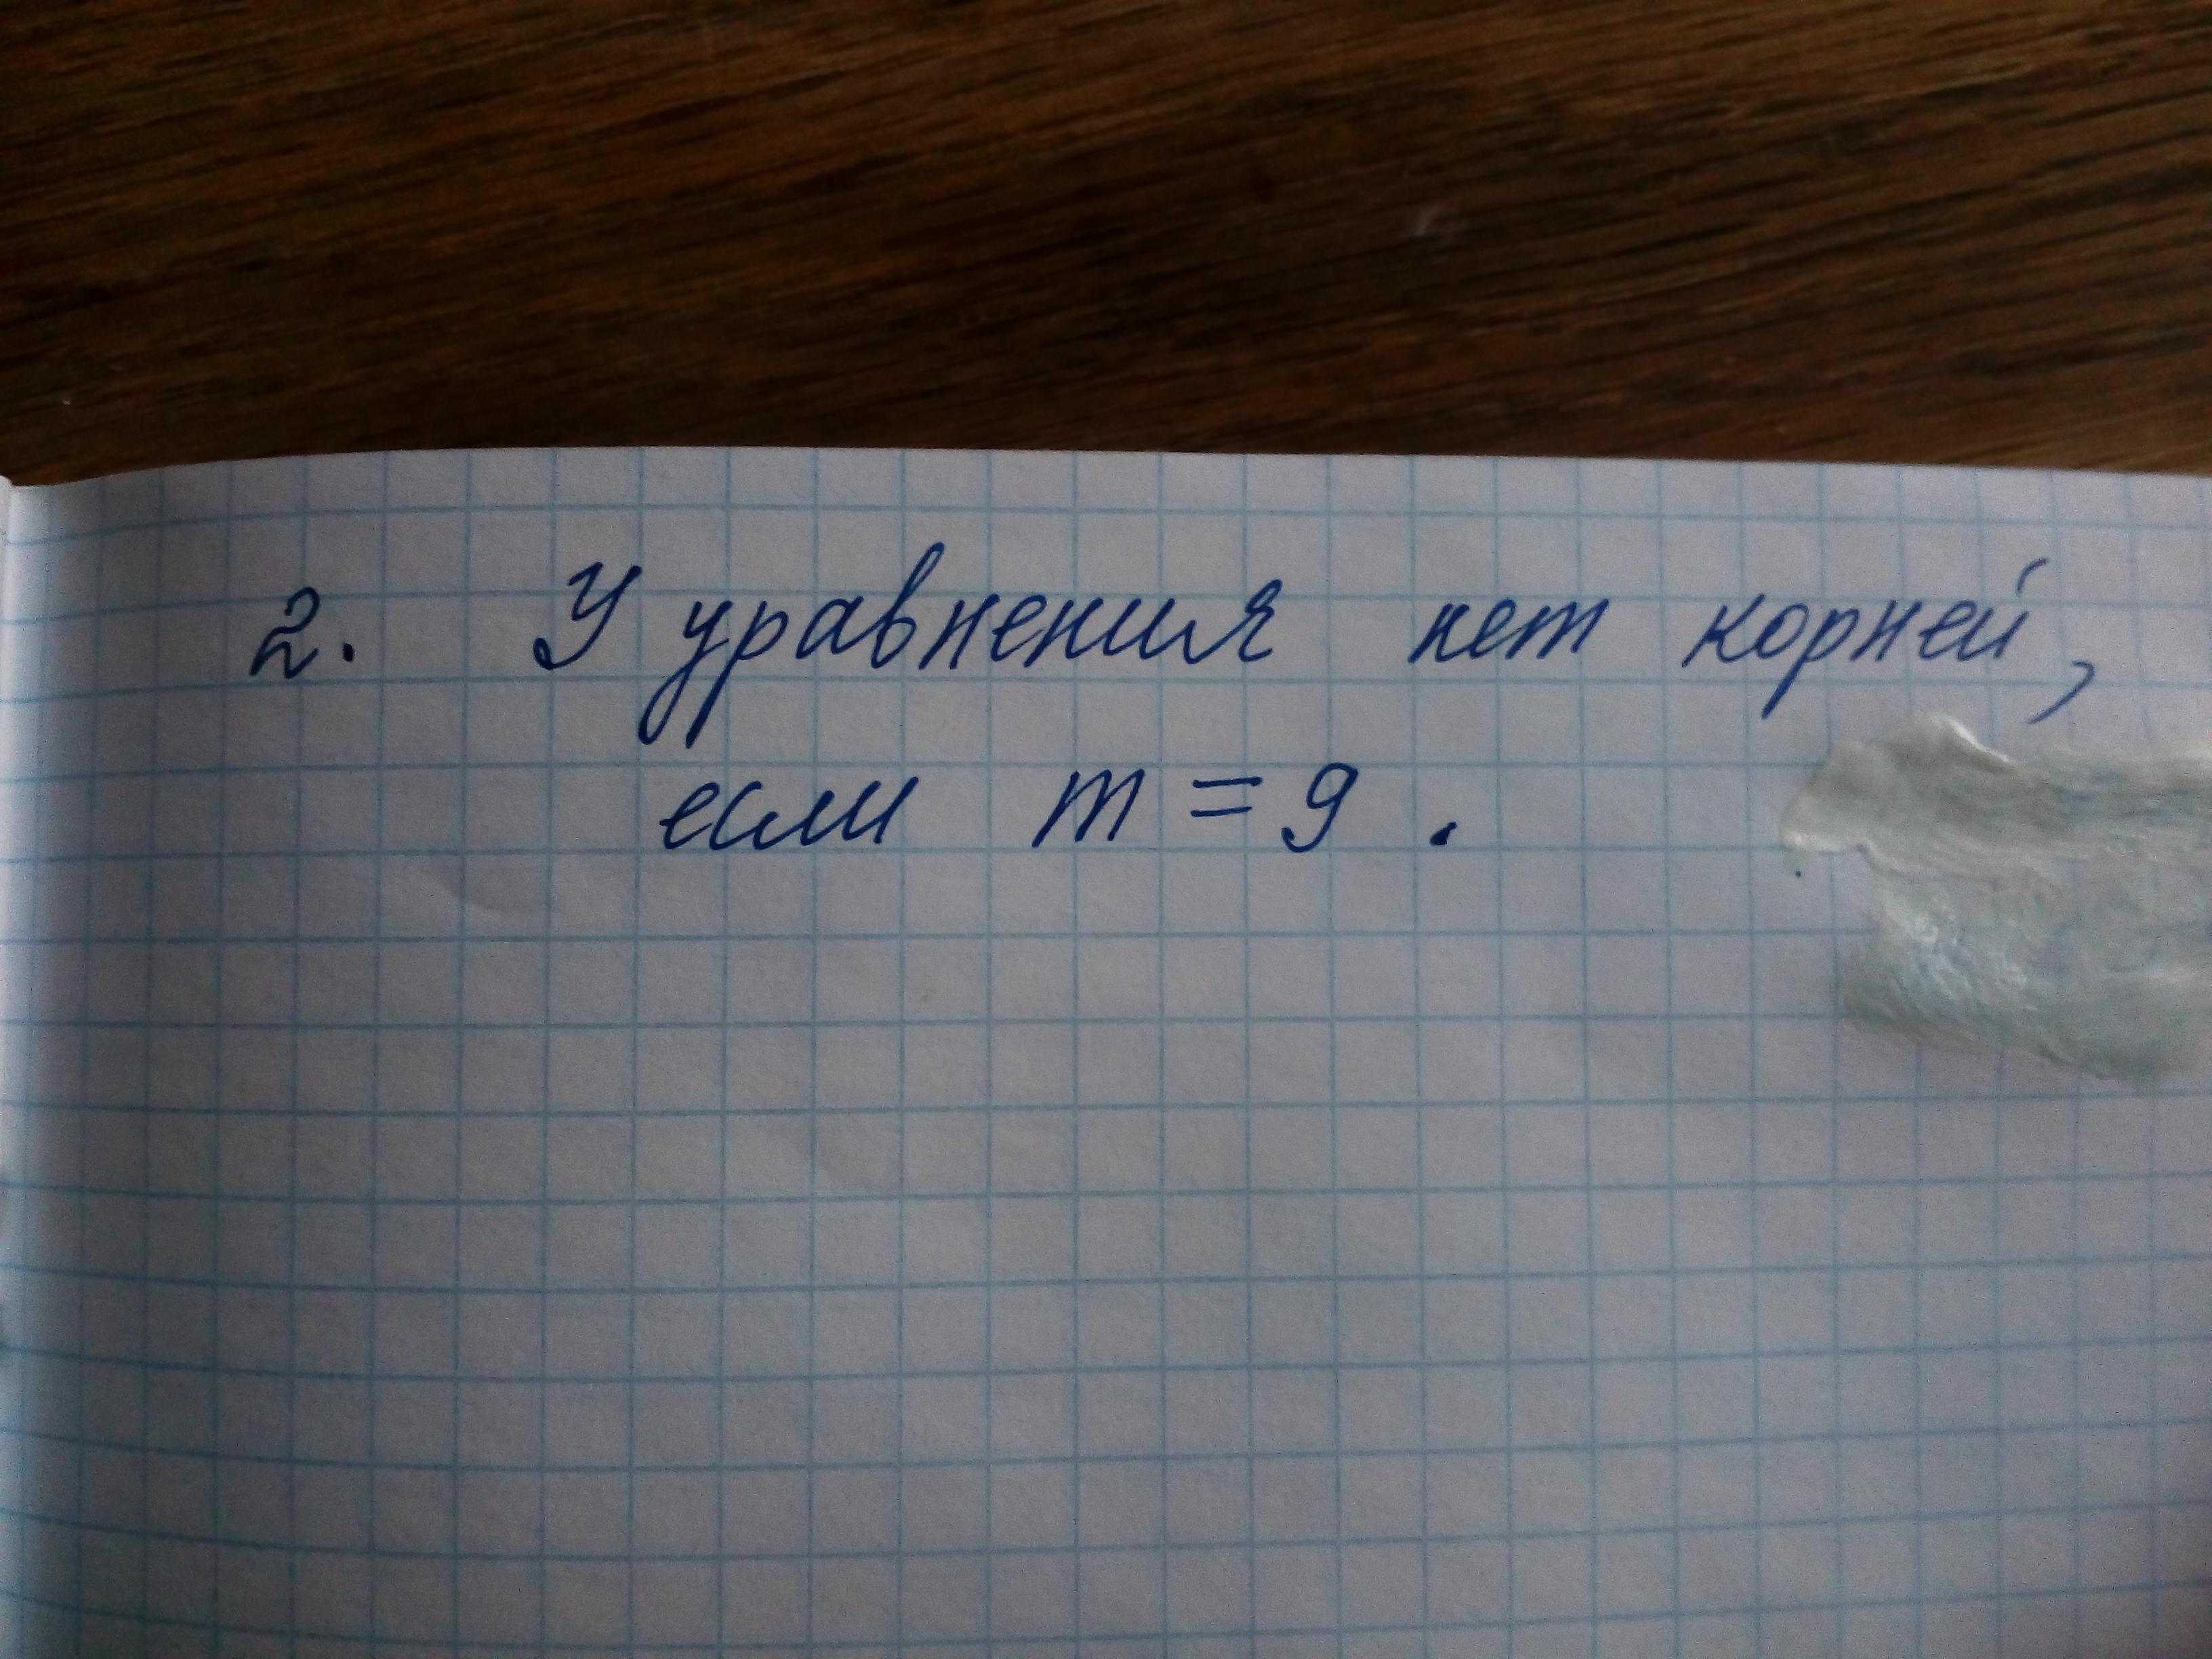 2. У уравнения нет корней,
если m = 9 .